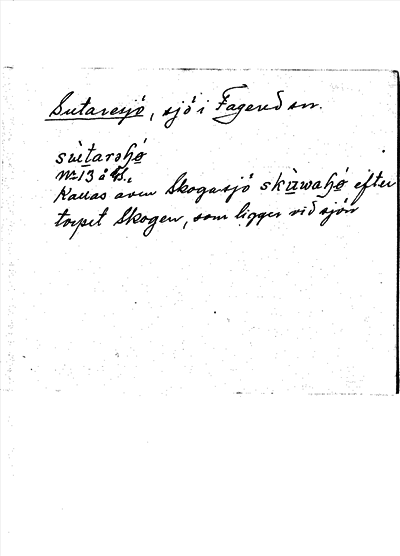 Sutaresjö, sjö i Fagered sn.
sùtarəɧö
Nr 13 å GS.
Kallas även Skogasjö skùwaɧö efter
torpet Skogen, som ligger vid sjön